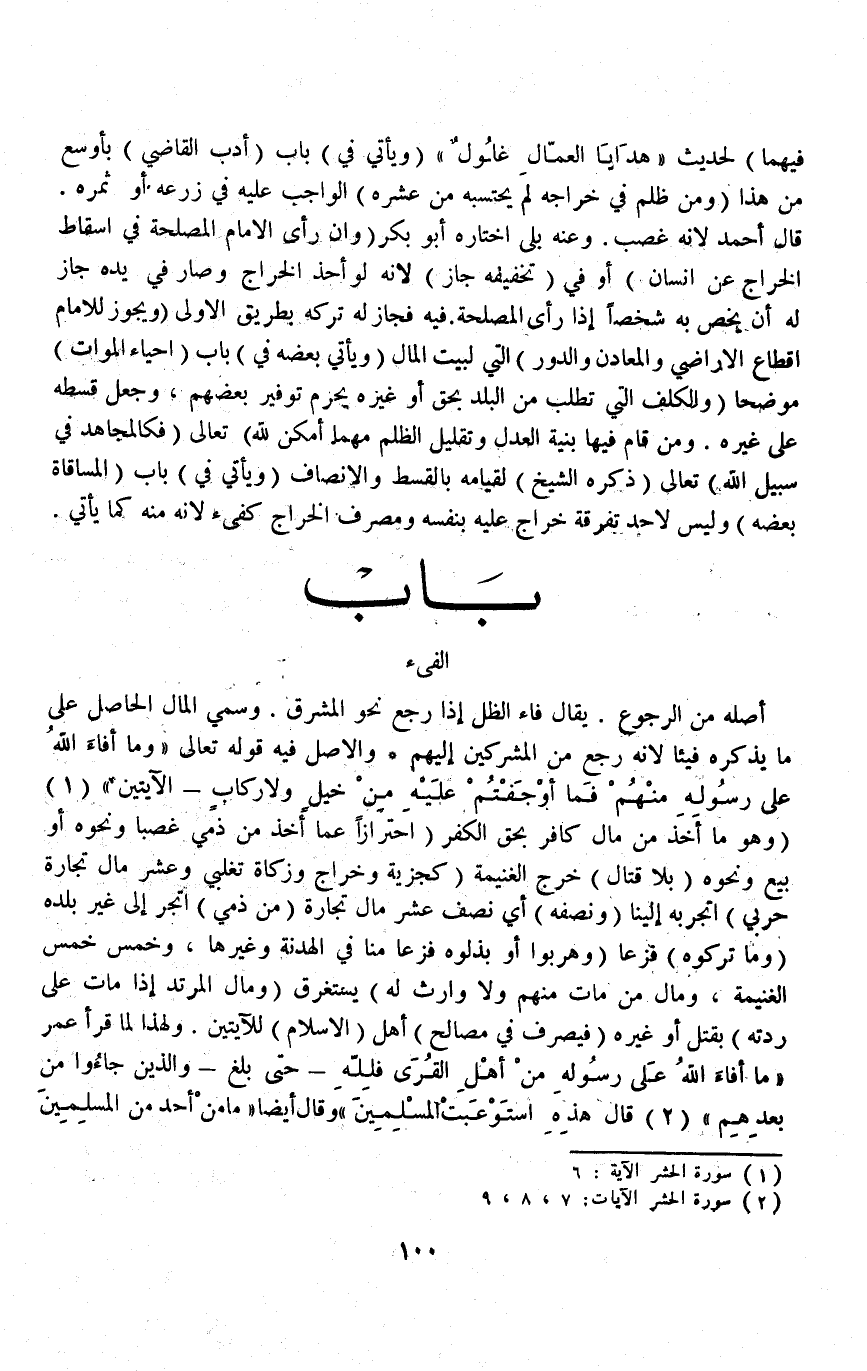 فيهما ) لحديث « هدَايَا العمّال ِ غلُول ٌ » ( ويأتي في ) باب ( أدب القاضي ) بأوسع
من هذا ( ومن ظلم في خراجه لم يحتسبه من عشره ) الواجب عليه في زرعه أو ثمره .
قال أحمد لانه غصب . وعنه بلى اختاره أبو بكر ( وان رأى الامام المصلحة في اسقاط
الخراج عن انسان ) أو في ( تخفيفه جاز ) لانه لو أخذ الخراج وصار في يده جاز
له أن يخص به شخصاً إذا رأى المصلحة فيه فجاز له تركه بطريق الاولى ( ويجوز للامام
اقطاع الاراضي والمعادن والدور ) التي لبيت المال ( ويأتي بعضه في ) باب ( احياء الموات )
موضحا ( والكلف التي تطلب من البلد بحق أو غيره يحرم توفير بعضهم ، وجعل قسطه
على غيره . ومن قام فيها بنية العدل وتقليل الظلم مهما أمكن لله ) تعالى ( فكالمجاهد في
سبيل الله ) تعالى ( ذكره الشيخ ) لقيامه بالقسط والانصاف ( ويأتي في ) باب ( المساقاة
بعضه ) وليس لاحد تفرقة خراج عليه بنفسه ومصرف الخراج كفيء لانه منه كما يأتي .
بَابْ
الفيء
أصله من الرجوع . يقال فاء الظل إذا رجع نحو المشرق . وسمي المال الحاصل على
ما يذكره فيئا لانه رجع من المشركين إليهم * والاصل فيه قوله تعالى « وما أفاءَ اللهُ
على رسُولِهِ منْهُمْ فَما أوْجَفْتُمْ علَيْهِ مِنْ خيلٍ ولاركابٍ – الآيتين » ( ١ )
( وهو ما أخذ من مال كافر بحق الكفر ( احترازاً عما أخذ من ذمي غصبا ونحوه أو
بيع ونحوه ( بلا قتال ) خرج الغنيمة ( كجزية وخراج وزكاة تغلبي وعشر مال تجارة
حربي ) اتجر به إلينا ( ونصفه ) أي نصف عشر مال تجارة ( من ذمي ) اتجر إلى غير بلده
( وما تركوه ) فزعا ( وهربوا أو بذلوه فزعا منا في الهدنة وغيرها ، وخمس خمس
الغنيمة ، ومال من مات منهم ولا وارث له ) يستغرق ( ومال المرتد إذا مات على
ردته ) بقتل أو غيره ( فيصرف في مصالح ) أهل ( الاسلام ) للآيتين . ولهذا لما قرأ عمر
« ما أفاءَ اللهُ عَلى رسُوله ِ من ْ أهْل ِ القُرَى فلِلّه ِ – حتى بلغ – والذين جاءُوا من
بعدِهِم » ( ٢ ) قال هذِه ِ استَوْعَبَتْ المسْلِمِينَ » وقال أيضا « مامن ْ أحد من المسلِمِينَ
( ١ ) سورة الحشر الآية : ٦
( ٢ ) سورة الحشر الآيات : ٧ ، ٨ ، ٩
١٠٠